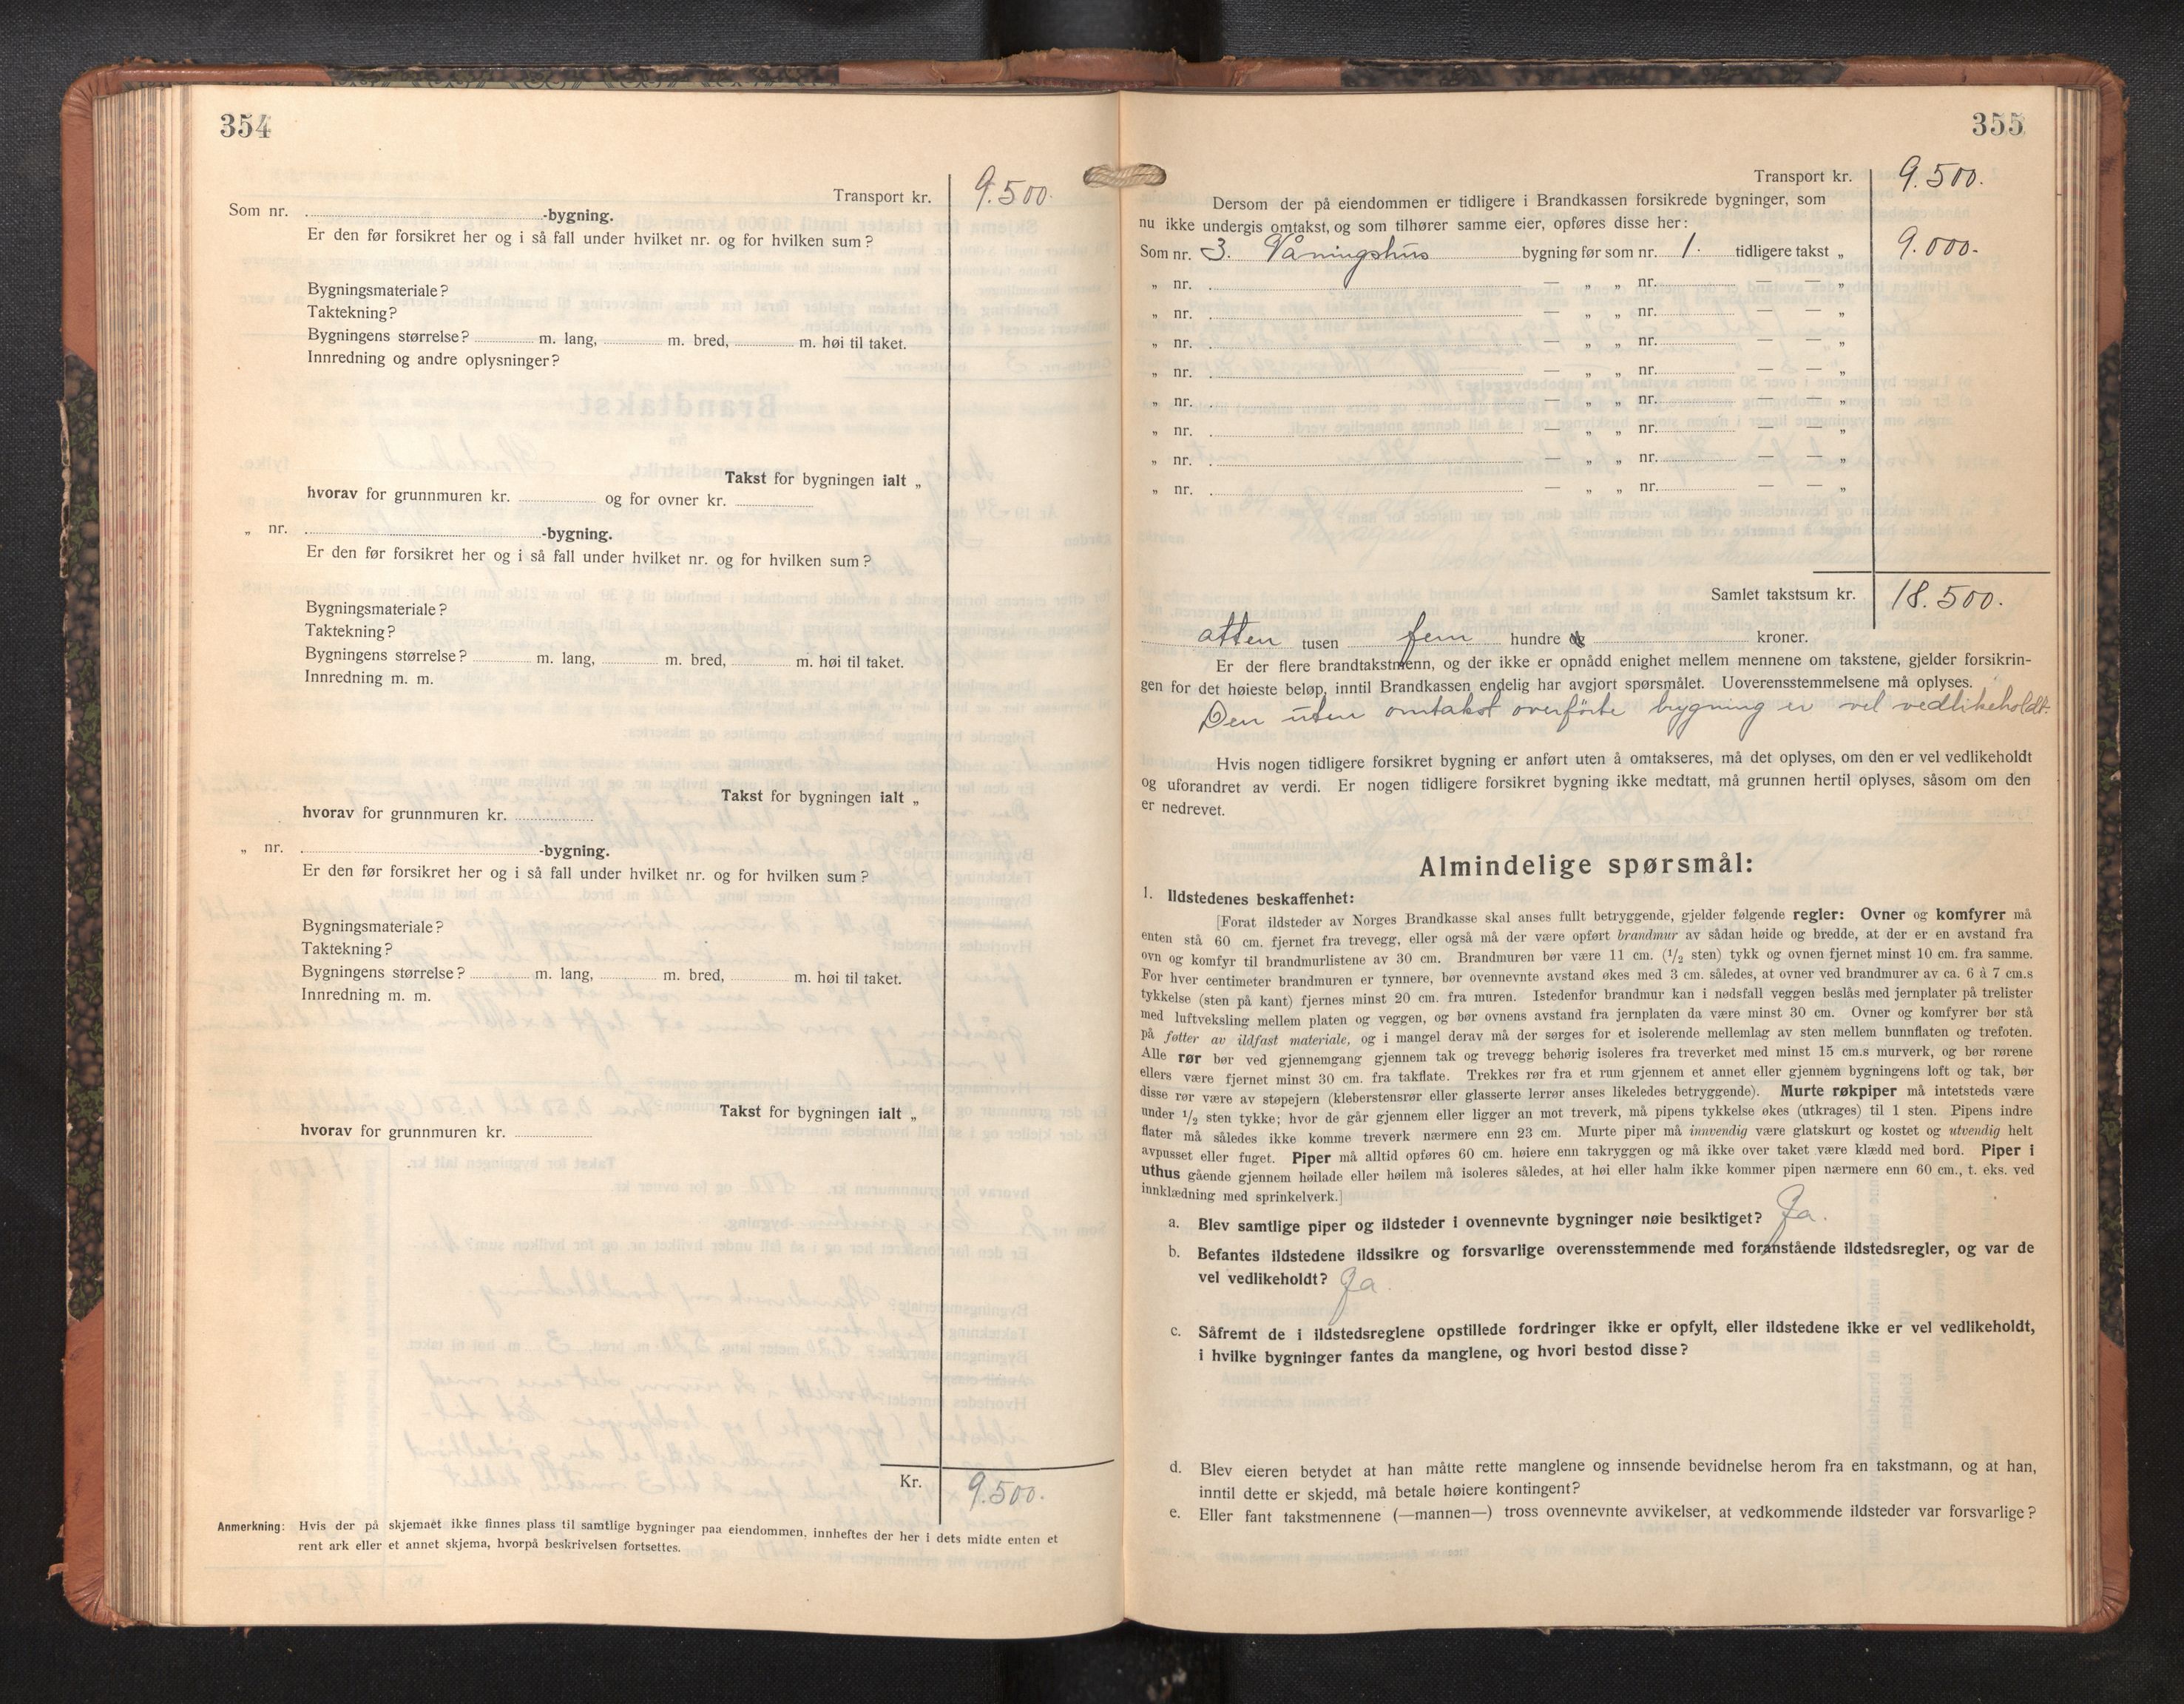 354
Transport kr. 9.500.
Som nr. -bygning.
Er den før forsikret her og i så fall under hvilket nr. og for hvilken sum?
Bygningsmateriale?
Taktekning?
Bygningens størrelse? m. lang, m. bred, m. høi til taket.
Innredning og andre oplysninger?
Takst for bygningen ialt „
hvorav for grunnmuren kr. og for ovner kr.
„ nr. -bygning.
Er den før forsikret her og i så fall under hvilket nr. og for hvilken sum?
Bygningsmateriale?
Taktekning?
Bygningens størrelse? m. lang, m. bred, m. høi til taket.
Innredning m. m.
Takst for bygningen ialt „
hvorav for grunnmuren kr.
„ nr. -bygning.
Er den før forsikret her og i så fall under hvilket nr. og for hvilken sum?
Bygningsmateriale?
Taktekning?
Bygningens størrelse? m. lang, m. bred, m. høi til taket.
Innredning m. m.
Takst for bygningen ialt „
hvorav for grunnmuren kr.
Kr. 9.500.
Anmerkning: Hvis der på skjemaet ikke finnes plass til samtlige bygninger paa eiendommen, innheftes der her i dets midte enten et
rent ark eller et annet skjema, hvorpå beskrivelsen fortsettes.
355
Transport kr. 9.500.
Dersom der på eiendommen er tidligere i Brandkassen forsikrede bygninger, som
nu ikke undergis omtakst, og som tilhører samme eier, opføres disse her:
Som nr. 3. Våningshus bygning før som nr. 1. tidligere takst „ 9.000.
„ nr. — „ „ nr. — — „
„ nr. — „ „ nr. — — „
„ nr. — „ „ nr. — — „
„ nr. — „ „ nr. — — „
„ nr. — „ „ nr. — — „
„ nr. — „ „ nr. — — „
„ nr. — „ „ nr. — — „
„ nr. — „ „ nr. — — „
Samlet takstsum kr. 18.500.
atten tusen fem hundre og kroner.
Er der flere brandtakstmenn, og der ikke er opnådd enighet mellem mennene om takstene, gjelder forsikrin-
gen for det høieste beløp, inntil Brandkassen endelig har avgjort spørsmålet. Uoverensstemmelsene må oplyses.
Den uten omtakst overførte bygning er vel vedlikeholdt.
Hvis nogen tidligere forsikret bygning er anført uten å omtakseres, må det oplyses, om den er vel vedlikeholdt
og uforandret av verdi. Er nogen tidligere forsikret bygning ikke medtatt, må grunnen hertil oplyses, såsom om den
er nedrevet.
Almindelige spørsmål:
1. Ildstedenes beskaffenhet:
[Forat ildsteder av Norges Brandkasse skal anses fullt betryggende, gjelder følgende regler: Ovner og komfyrer må
enten stå 60 cm. fjernet fra trevegg, eller også må der være opført brandmur av sådan høide og bredde, at der er en avstand fra
ovn og komfyr til brandmurlistene av 30 cm. Brandmuren bør være 11 cm. (1/2 sten) tykk og ovnen fjernet minst 10 cm. fra samme.
For hver centimeter brandmuren er tynnere, bør ovennevnte avstand økes med 3 cm. således, at ovner ved brandmurer av ca. 6 à 7 cm.s
tykkelse (sten på kant) fjernes minst 20 cm. fra muren. Istedenfor brandmur kan i nødsfall veggen beslås med jernplater på trelister
med luftveksling mellem platen og veggen, og bør ovnens avstand fra jernplaten da være minst 30 cm. Ovner og komfyrer bør stå
på føtter av ildfast materiale, og i mangel derav må der sørges for et isolerende mellemlag av sten mellem bunnflaten og trefoten.
Alle rør bør ved gjennemgang gjennem tak og trevegg behørig isoleres fra treverket med minst 15 cm.s murverk, og bør rørene
ellers være fjernet minst 30 cm. fra takflate. Trekkes rør fra et rum gjennem et annet eller gjennem bygningens loft og tak, bør
disse rør være av støpejern (kleberstensrør eller glasserte lerrør anses likeledes betryggende). Murte røkpiper må intetsteds være
under 1/2 sten tykke; hvor de går gjennem eller ligger an mot treverk, må pipens tykkelse økes (utkrages) til 1 sten. Pipens indre
flater må således ikke komme treverk nærmere enn 23 cm. Murte piper må innvendig være glatskurt og kostet og utvendig helt
avpusset eller fuget. Piper må alltid opføres 60 cm. høiere enn takryggen og må ikke over taket være klædd med bord. Piper i
uthus gående gjennem høilade eller høilem må isoleres således, at høi eller halm ikke kommer pipen nærmere enn 60 cm., t. eks. ved
innklædning med sprinkelverk.]
a. Blev samtlige piper og ildsteder i ovennevnte bygninger nøie besiktiget? Ja.
b. Befantes ildstedene ildssikre og forsvarlige overensstemmende med foranstående ildstedsregler, og var de
vel vedlikeholdt? Ja.
c. Såfremt de i ildstedsreglene opstillede fordringer ikke er opfylt, eller ildstedene ikke er vel vedlikeholdt,
i hvilke bygninger fantes da manglene, og hvori bestod disse?
d. Blev eieren betydet at han måtte rette manglene og innsende bevidnelse herom fra en takstmann, og at han,
inntil dette er skjedd, må betale høiere kontingent?
e. Eller fant takstmennene (—mannen—) tross ovennevnte avvikelser, at vedkommende ildsteder var forsvarlige?